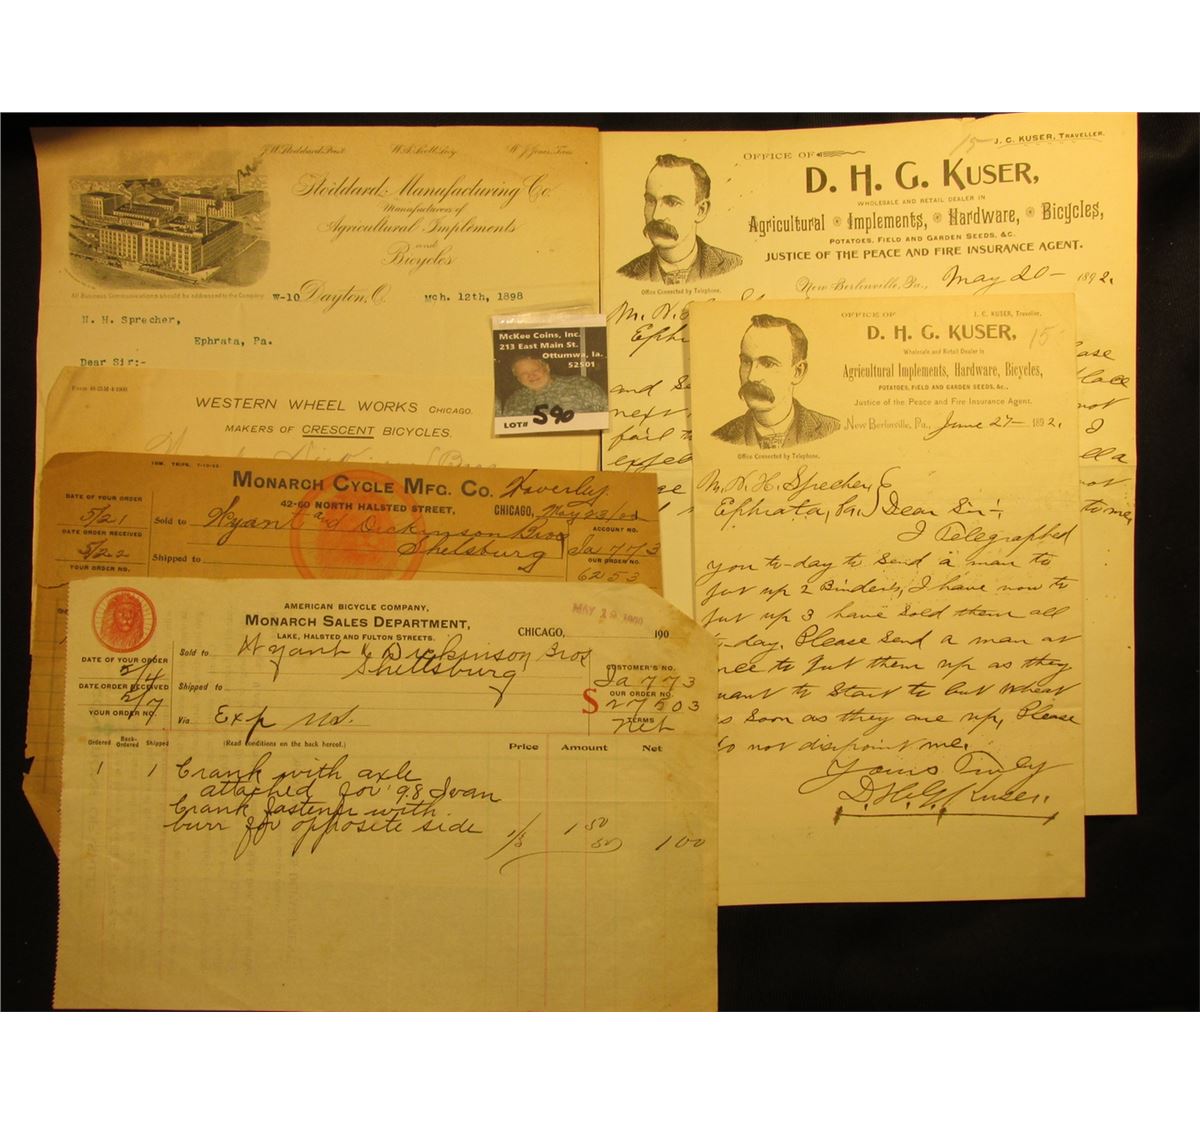 J.W. Stoddard, Prest. W.A. Scott, Secy. W.J. Jones, Treas.
Stoddard Manufacturing Co.
Manufacturers of
Agricultural Implements
and
Bicycles
All Business Communications should be addressed to the Company
W-10 Dayton, O. Mch. 12th, 1898
N. H. Sprecher,
Ephrata, Pa.
Dear Sir:-
J. C. KUSER, TRAVELLER.
15
OFFICE OF
D. H. G. KUSER,
WHOLESALE AND RETAIL DEALER IN
Agricultural Implements, Hardware, Bicycles,
POTATOES, FIELD AND GARDEN SEEDS, &C.
JUSTICE OF THE PEACE AND FIRE INSURANCE AGENT.
Office Connected by Telephone.
New Berlenville, Pa., May 20- 1892.
and
next
McKee Coins, Inc.
213 East Main St.
Ottumwa, Ia.
52501
LOT# 590
OFFICE OF J. C. KUSER, Traveller.
D. H. G. KUSER, 15
Wholesale and Retail Dealer in
Agricultural Implements, Hardware, Bicycles,
POTATOES, FIELD AND GARDEN SEEDS, &c.,
Justice of the Peace and Fire Insurance Agent.
Office Connected by Telephone.
New Berlinville, Pa., June 27- 1892.
Mr. N. H. Sprecher,
Ephrata, Pa.) Dear Sir:
I Telegraphed
you to-day to send a man to
put up 2 Binders, I have now to
put up 3 have sold them all
to-day, Please send a man at
once to put them up as they
want to start to cut wheat
as soon as they are up, Please
do not disipoint me.
Yours Truly
D. H. G. Kuser.
WESTERN WHEEL WORKS CHICAGO.
MAKERS OF CRESCENT BICYCLES.
MONARCH CYCLE MFG. CO. Waverley
42-60 NORTH HALSTED STREET, CHICAGO, May 23/02
DATE OF YOUR ORDER
5/21
DATE ORDER RECEIVED
5/22
YOUR ORDER NO.
Sold to Wyant and Dickinson Bros
Shelsburg
Shipped to
ACCOUNT NO.
Ia 773
OUR ORDER NO.
6253
AMERICAN BICYCLE COMPANY,
MONARCH SALES DEPARTMENT,
LAKE, HALSTED AND FULTON STREETS.
MAY 19 1900
CHICAGO, 190
Sold to Wyant & Dickinson Bros
Shellsburg
Shipped to
Via Exp us.
DATE OF YOUR ORDER
DATE ORDER RECEIVED
YOUR ORDER NO.
CUSTOMER'S NO.
Ia 773
OUR ORDER NO.
S 27503
TERMS
Net
Ordered Back-Ordered Shipped (Read conditions on the back hereof.) Price Amount Net
1 1 Crank with axle
attached for 98 Ivan
Crank fastener with
burr for opposite side 1 50
50 1 00